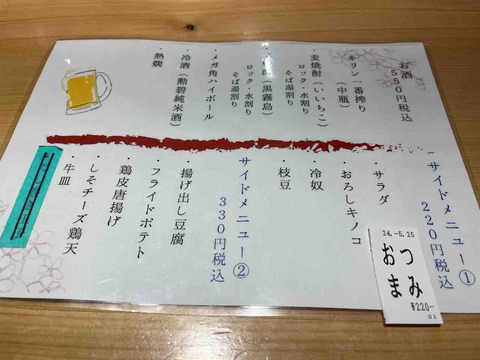 お酒
550円税込
・キリン一番搾り
（中瓶）
・麦焼酎（いいちこ）
ロック・水割り
そば湯割り
（黒霧島）
ロック・水割り
そば湯割り
・メガ角ハイボール
・冷酒（勲碧純米酒）
・熱燗
サイドメニュー①
220円税込
・サラダ
・おろしキノコ
・冷奴
・枝豆
サイドメニュー②
330円税込
・揚げ出し豆腐
・フライドポテト
・鶏皮唐揚げ
・しそチーズ鶏天
・牛皿
24.-5.25
おつまみ
¥220-